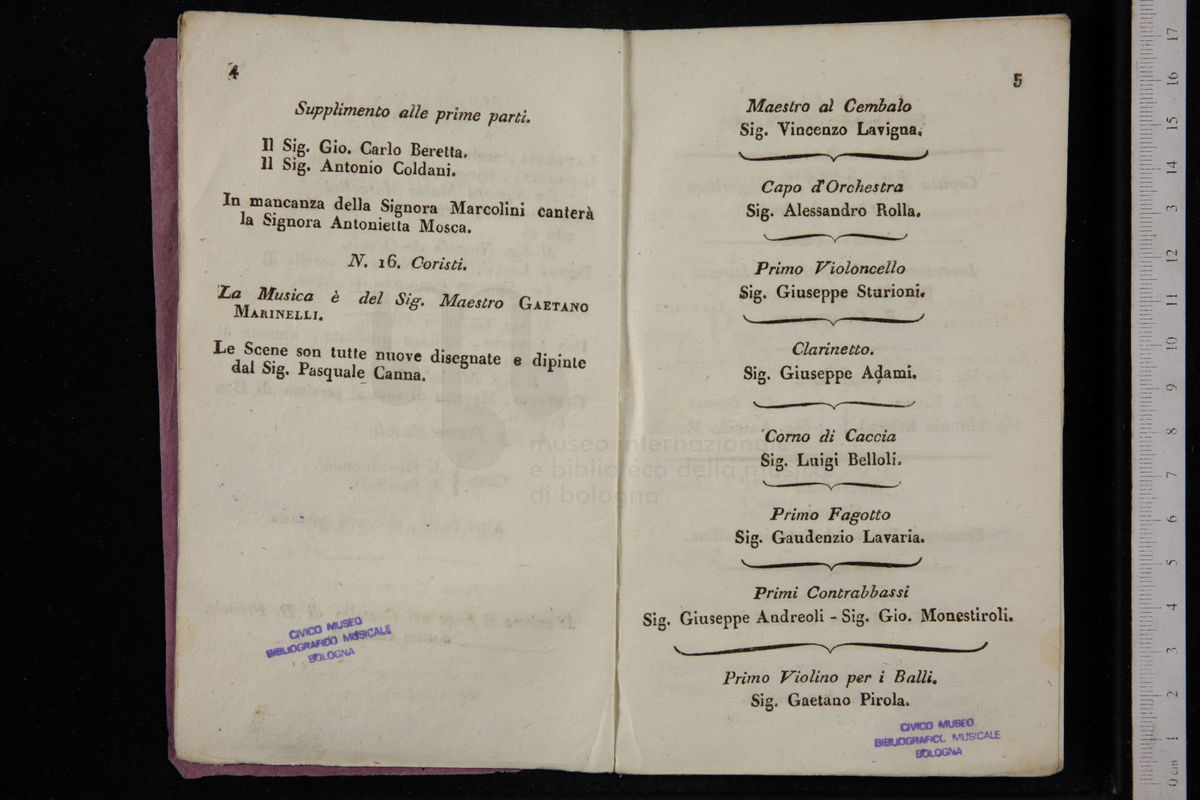 4
Supplimento alle prime parti.
Il Sig. Gio. Carlo Beretta.
Il Sig. Antonio Coldani.
In mancanza della Signora Marcolini canterà
la Signora Antonietta Mosca.
N. 16. Coristi.
La Musica è del Sig. Maestro GAETANO
MARINELLI.
Le Scene son tutte nuove disegnate e dipinte
dal Sig. Pasquale Canna.
CIVICO MUSEO
BIBLIOGRAFICO MUSICALE
BOLOGNA
5
Maestro al Cembalo
Sig. Vincenzo Lavigna.
Capo d'Orchestra
Sig. Alessandro Rolla.
Primo Violoncello
Sig. Giuseppe Sturioni.
Clarinetto.
Sig. Giuseppe Adami.
Corno di Caccia
Sig. Luigi Belloli.
Primo Fagotto
Sig. Gaudenzio Lavaria.
Primi Contrabbassi
Sig. Giuseppe Andreoli - Sig. Gio. Monestiroli.
Primo Violino per i Balli.
Sig. Gaetano Pirola.
CIVICO MUSEO
BIBLIOGRAFICO MUSICALE
BOLOGNA
museo internazionale
e biblioteca della musica
di bologna
17
16
15
14
13
12
11
10
9
8
7
6
5
4
3
2
1
0 cm